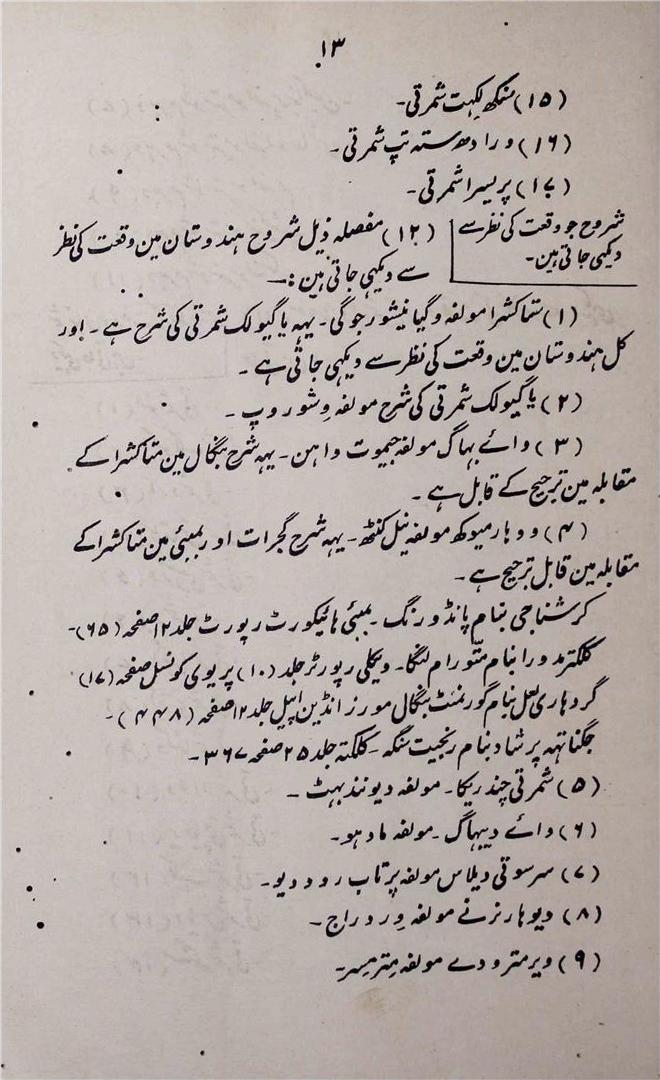 ۱۳
(۱۵) سنکھ لکہت شمرتی۔
(۱۶) ورادھوستہ تپ شمرتی۔
(۱۷) پریسرا شمرتی۔
شروح جو وقعت کی نظر سے
دیکھی جاتی ہین۔
(۱۲) مفصلہ ذیل شروح ہندوستان مین وقعت کی نظر
سے دیکہی جاتی ہین :—
(۱) متاکشرا مولفہ وگیانیشور جوگی۔ یہہ یاگیولک شمرتی کی شرح ہے۔ اور
کل ہندوستان مین وقعت کی نظر سے دیکہی جاتی ہے۔
(۲) یاگیولک شمرتی کی شرح مولفہ وشوروپ۔
(۳) وائے بہاگ مولفہ جیموت واہن۔ یہہ شرح بنگال مین متاکشرا کے
مقابلہ مین ترجیح کے قابل ہے۔
(۴) ووہار میوکھ مولفہ نیل کنٹھ۔ یہہ شرح گجرات اور بمبئی مین متاکشرا کے
مقابلہ مین قابل ترجیح ہے۔
کرشناجی بنام پانڈورنگ۔ بمبئی ہائیکورٹ رپورٹ جلد ۱۲ صفحہ (۶۵)۔
کلکتر مدورا بنام متورام لنگا۔ ویکلی رپورٹر جلد (۱۰) پریوی کونسل صفحہ (۱۷)
گردہاری لعل بنام گورنمنٹ بنگال مورز انڈین اپیل جلد ۱۲ صفحہ (۴۴۸)۔
جگناتہہ پرشاد بنام رنجیت سنگہ۔ کلکتہ جلد ۲۵ صفحہ ۳۶۷۔
(۵) شمرتی چندریکا۔ مولفہ دیونند بہٹ۔
(۶) وائے دیبہاگ۔ مولفہ مادہو۔
(۷) سرسوتی دیلاس مولفہ پرتاب رودردیو۔
(۸) دیوہار نرنے مولفہ وردراج۔
(۹) ویر مترودے مولفہ متر مسر۔